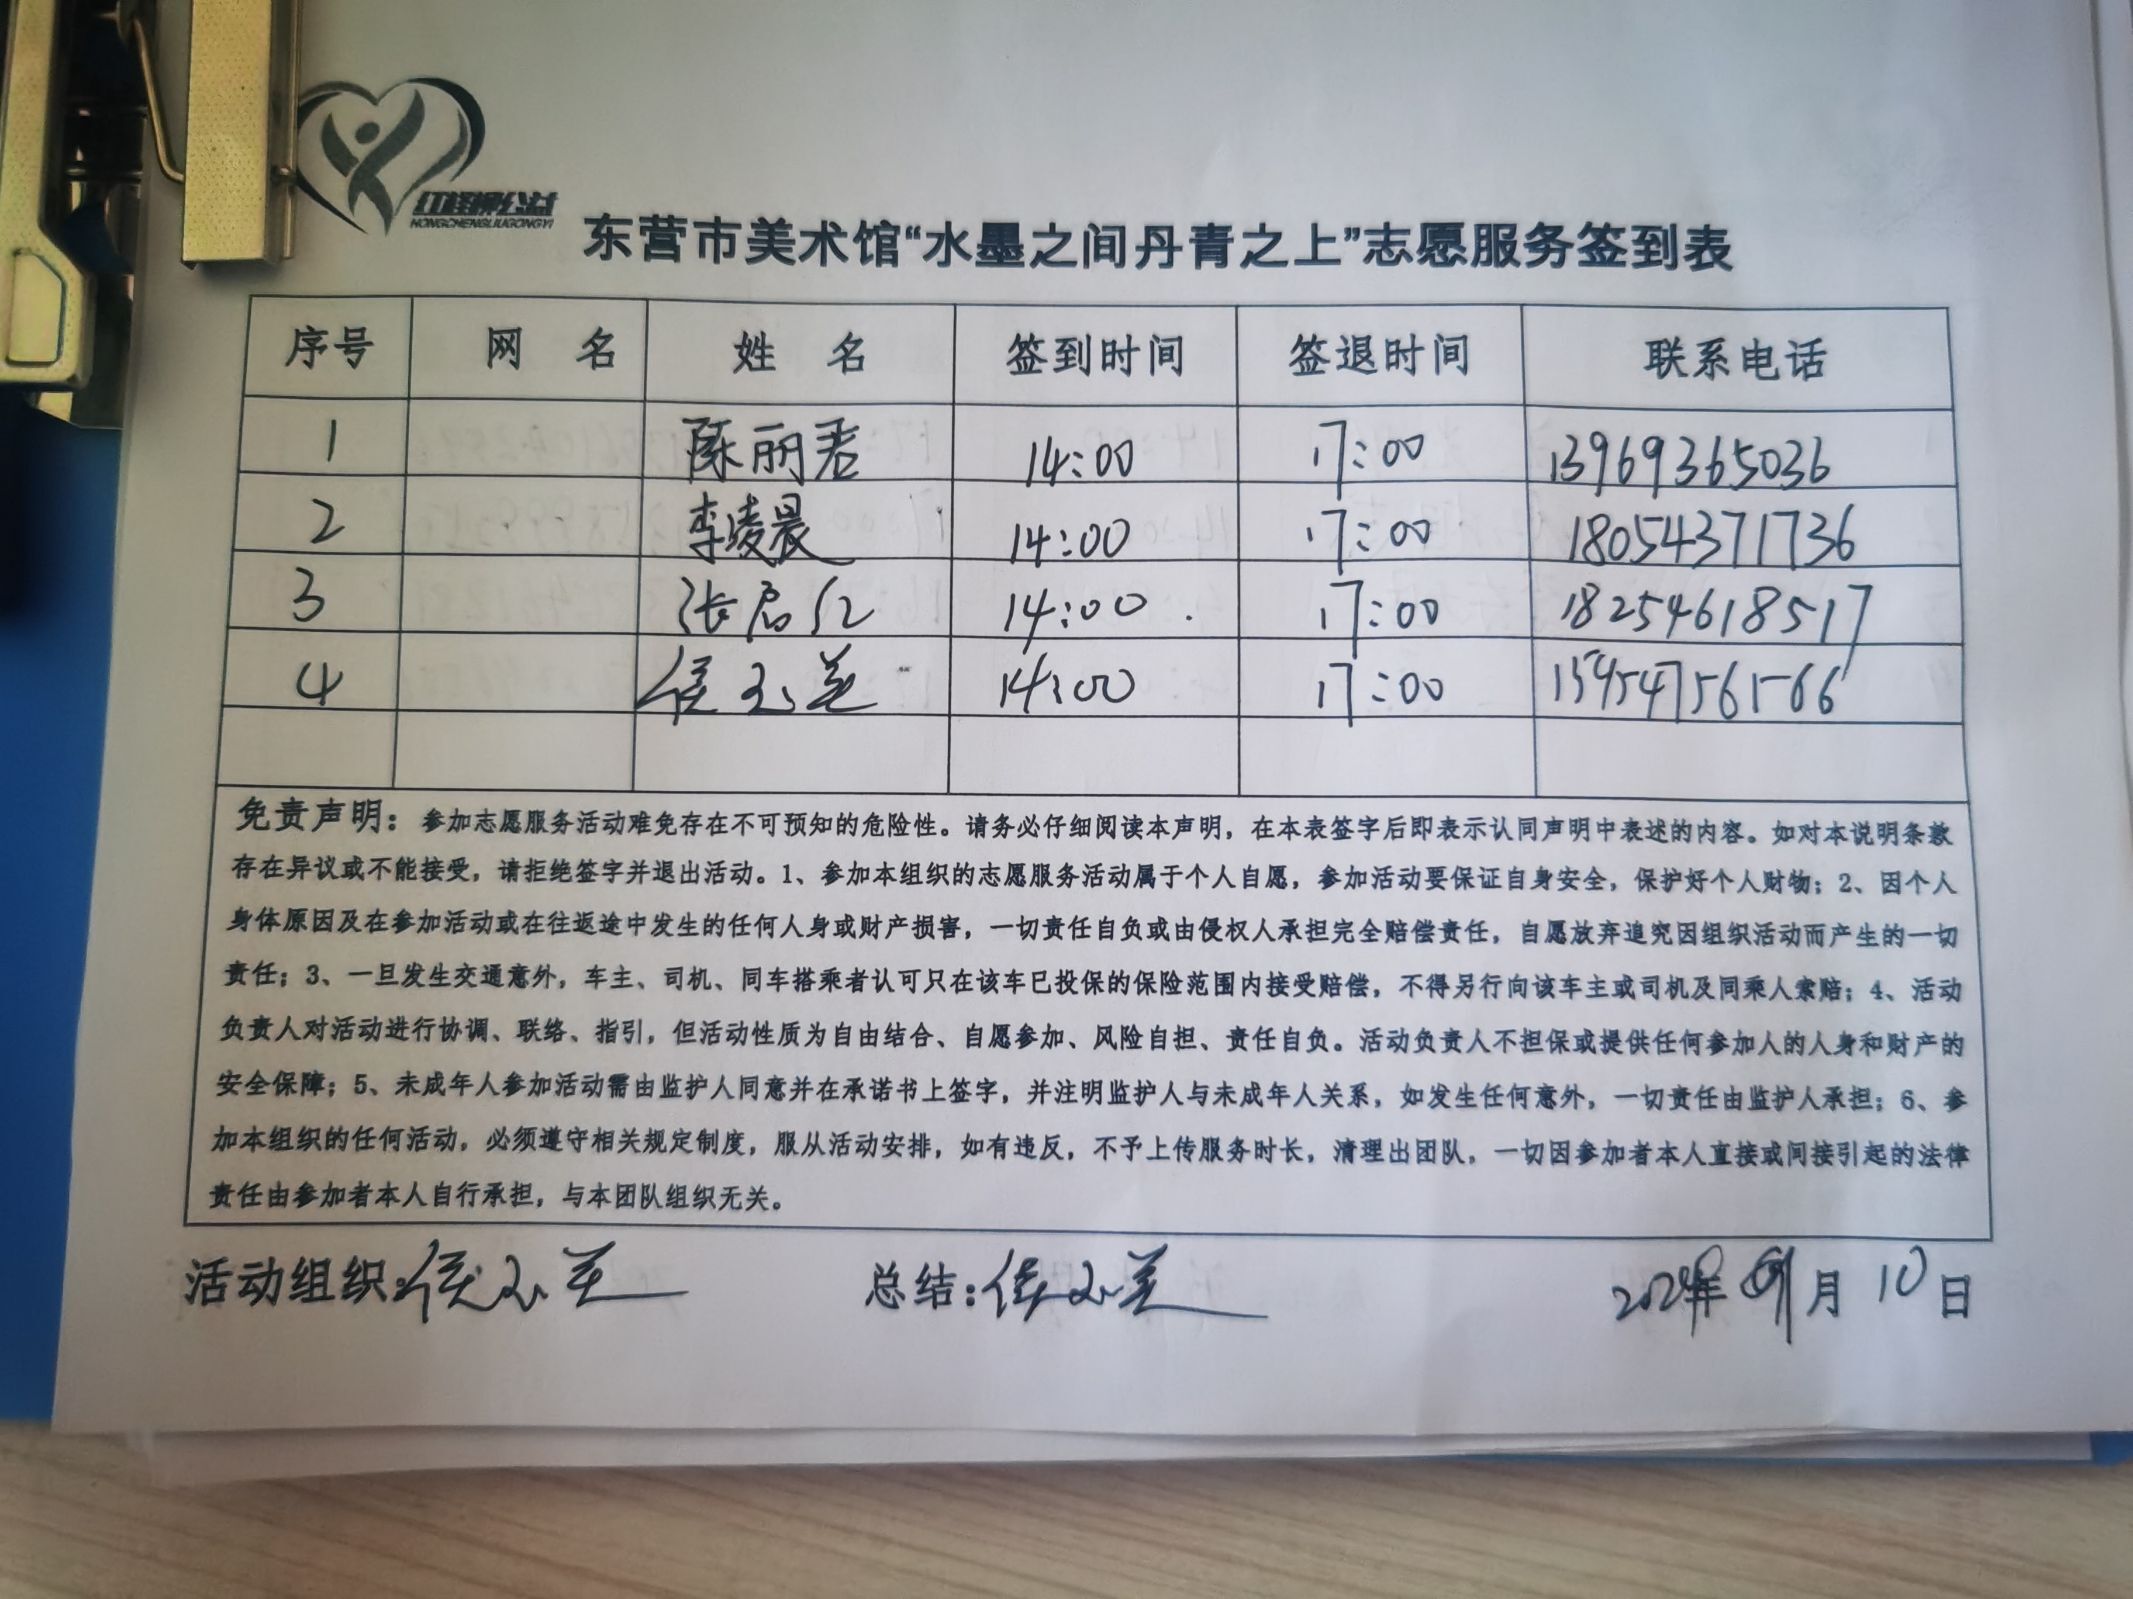 红橙柳公益
HONGCHENGLIUGONGYI
东营市美术馆“水墨之间丹青之上”志愿服务签到表
序号 网 名 姓 名 签到时间 签退时间 联系电话
1 陈丽君 14:00 17:00 13969365036
2 李凌晨 14:00 17:00 18054371736
3 张启仁 14:00 17:00 18254618517
4 侯玉兰 14:00 17:00 15454756566
免责声明：参加志愿服务活动难免存在不可预知的危险性。请务必仔细阅读本声明，在本表签字后即表示认同声明中表述的内容。如对本说明条款
存在异议或不能接受，请拒绝签字并退出活动。1、参加本组织的志愿服务活动属于个人自愿，参加活动要保证自身安全，保护好个人财物；2、因个人
身体原因及在参加活动或在往返途中发生的任何人身或财产损害，一切责任自负或由侵权人承担完全赔偿责任，自愿放弃追究因组织活动而产生的一切
责任；3、一旦发生交通意外，车主、司机、同车搭乘者认可只在该车已投保的保险范围内接受赔偿，不得另行向该车主或司机及同乘人索赔；4、活动
负责人对活动进行协调、联络、指引，但活动性质为自由结合、自愿参加、风险自担、责任自负。活动负责人不担保或提供任何参加人的人身和财产的
安全保障；5、未成年人参加活动需由监护人同意并在承诺书上签字，并注明监护人与未成年人关系，如发生任何意外，一切责任由监护人承担；6、参
加本组织的任何活动，必须遵守相关规定制度，服从活动安排，如有违反，不予上传服务时长，清理出团队，一切因参加者本人直接或间接引起的法律
责任由参加者本人自行承担，与本团队组织无关。
活动组织：侯玉兰 总结：侯玉兰 年 月 10 日